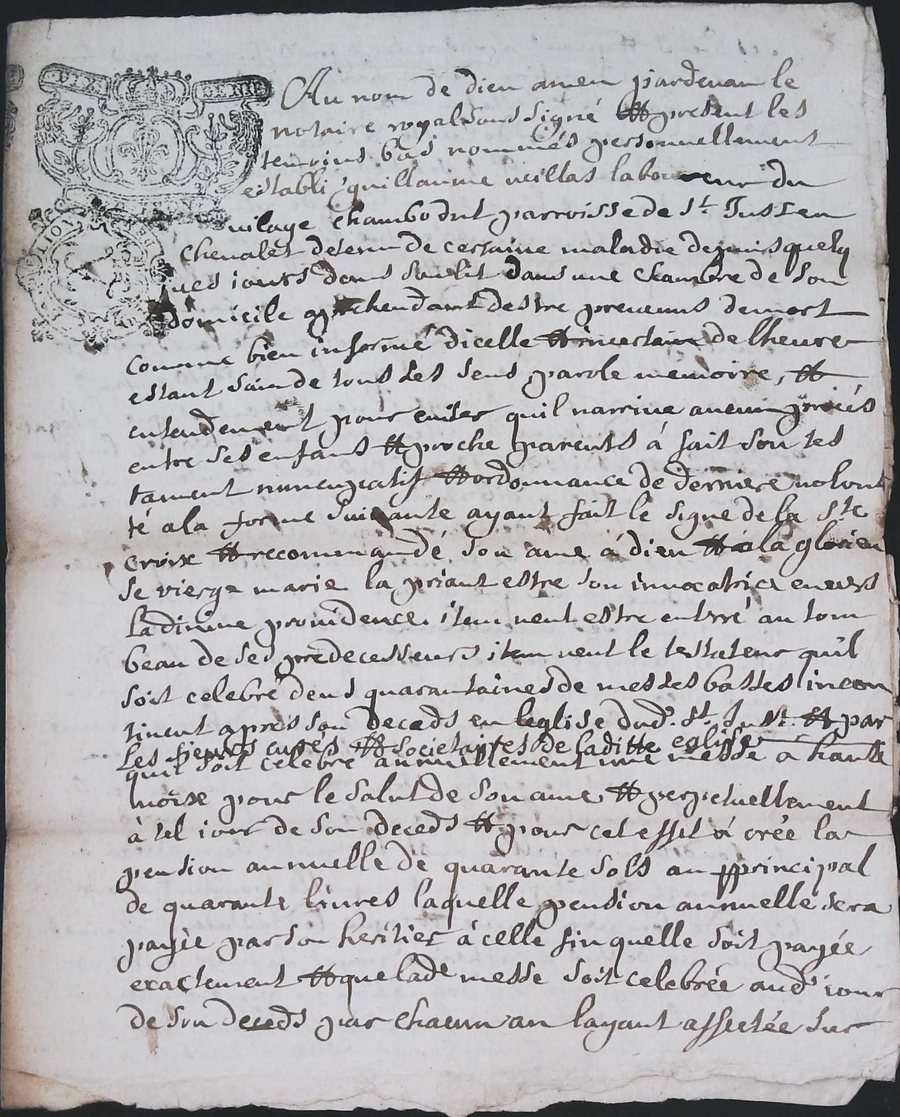 Au nom de dieu amen pardevant le
notaire royal soussigné & present les
temoins bas nommés personnellement
establi guillaume laboureur du
vilage chambodut parroisse de St. Just en
chevalet detenu de certaine maladie depuis quelq
ues jours dans son lit dans une chambre de son
domicile aprehendant destre prevenus de mort
comme bien informé dicelle & incertain de lheure
estant sain de tous ses sens parole memoire, &
entendement pour eviter quil narrive aucun procés
entre ses enfans & proche parents à fait son tes
tament nuncupatif & ordonnance de derniere volon
té a la forme suivante ayant fait le signe de la Ste
croix & recommandé son ame à dieu & à la glorieu
se vierge marie la priant estre son invocatrice envers
la divine providence item veut estre entrré au tom
beau de ses predecesseurs item veut le testateur quil
soit celebré deus quarantaines de messes basses incon
tinent apres son deceds en leglise dud. St. Just. & par
les sieurs curés & societaires de laditte eglise
quil soit celebré annuellement une messe à haute
voix pour le salut de son ame & perpetuellement
à tel jour de son deceds & pour cet effet à crée la
pension annuelle de quarante sols au principal
de quarante livres laquelle pension annuelle sera
payée par son heritier à celle fin quelle soit payée
exactement & que lade messe soit celebrée aud. jour
de son deceds par chacun an layant affectée sur